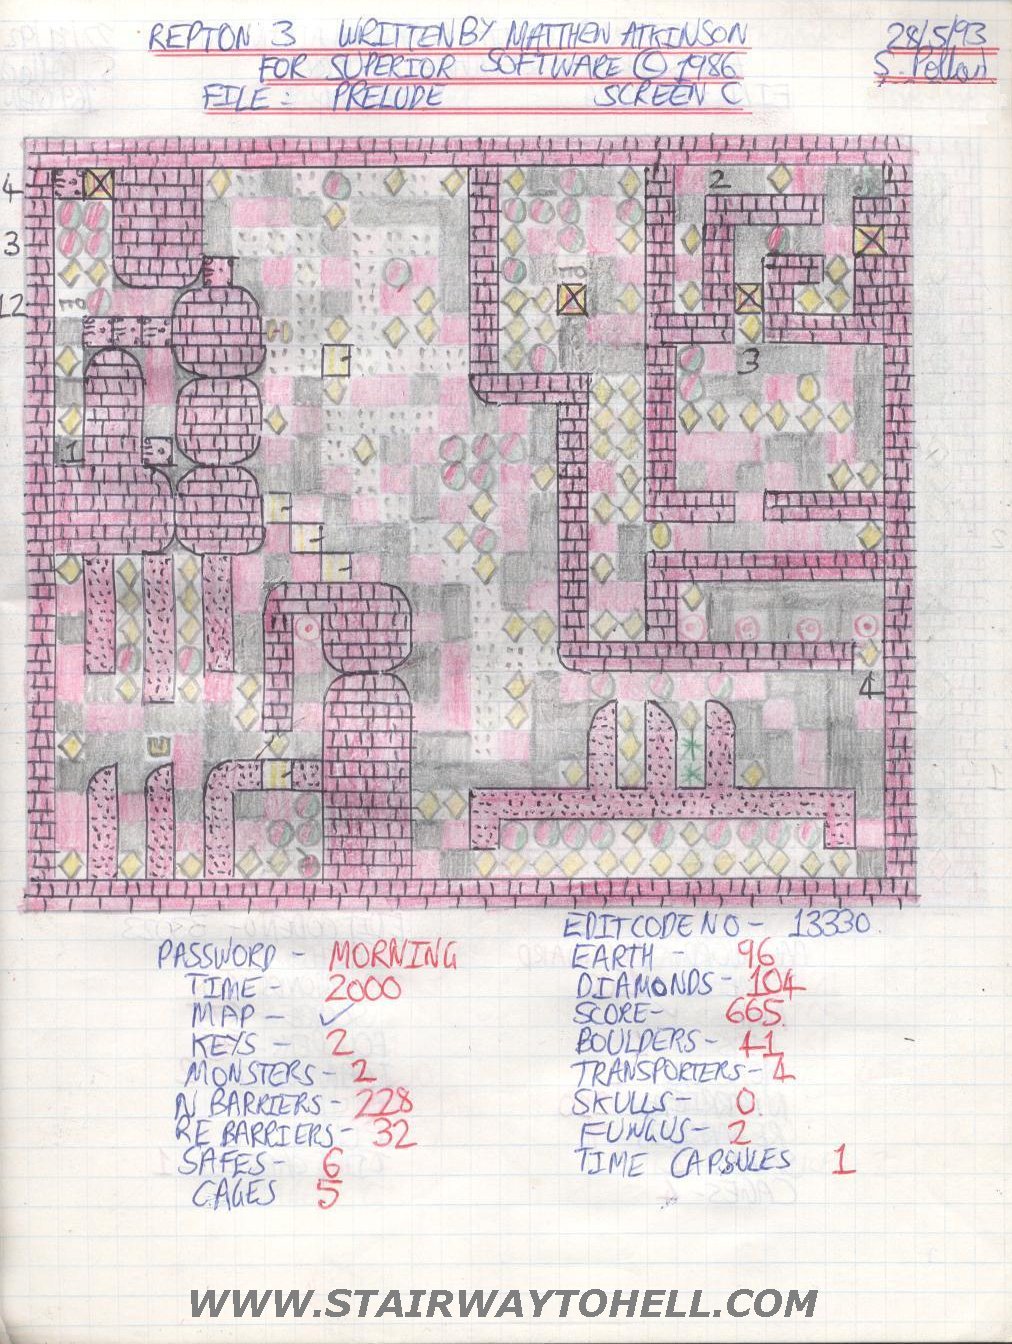 REPTON 3 WRITTEN BY MATTHEW ATKINSON 28/5/93
FOR SUPERIOR SOFTWARE © 1986 S. Pollard
FILE: PRELUDE SCREEN C
4
2
1
3
12
3
1
4
E
PASSWORD - MORNING
TIME - 2000
MAP - ✓
KEYS - 2
MONSTERS - 2
N BARRIERS - 228
RE BARRIERS - 32
SAFES - 6
CAGES 5
EDITCODE NO - 13330
EARTH - 96
DIAMONDS - 104
SCORE - 665
BOULDERS - 41
TRANSPORTERS - 4
SKULLS - 0
FUNGUS - 2
TIME CAPSULES 1
WWW.STAIRWAYTOHELL.COM